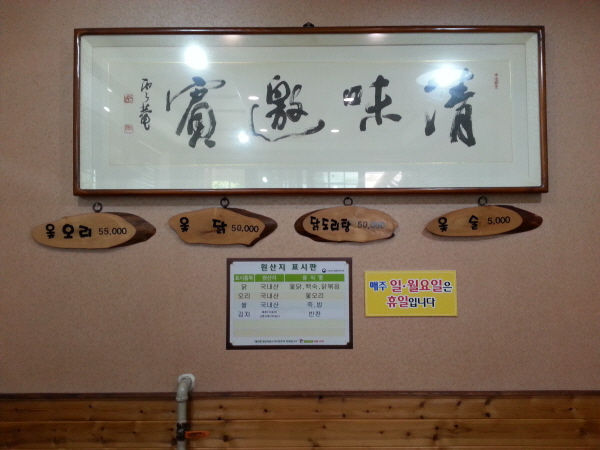 清味邀賓
옻오리 55,000
옻닭 50,000
닭도리탕 50,000
옻술 5,000
원산지 표시판
표시품목 원산지 음식명
닭 국내산 옻닭, 백숙, 닭볶음
오리 국내산 옻오리
쌀 국내산 죽, 밥
김치 반찬
매주 일·월요일은
휴일입니다